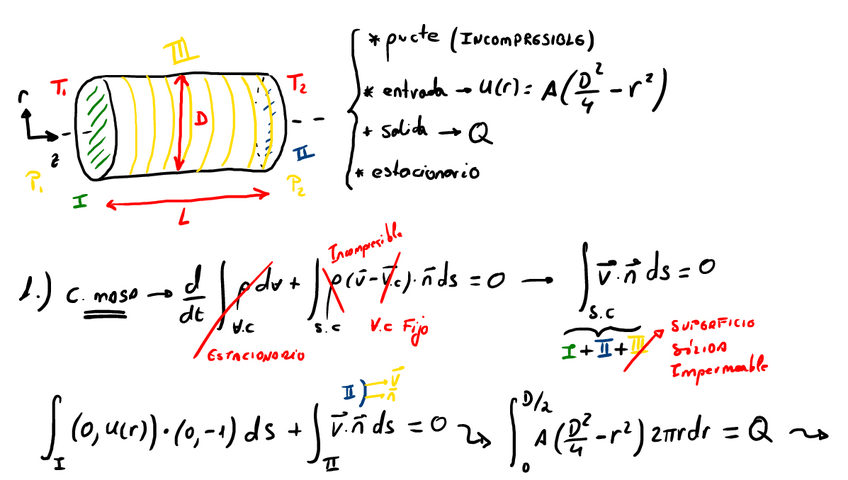 III
T₁
T₂
r
D
z
II
P₁
P₂
I
L
* ρ=cte (INCOMPRESIBLE)
* entrada → u(r) = A(D²/4 - r²)
+ salida → Q
* estacionario
1.) C. masa → d/dt ∫_{V.C} ρ dv + ∫_{S.C} ρ(v⃗ - v⃗.c)·n⃗ ds = 0 → ∫_{S.C} v⃗·n⃗ ds = 0
Incompresible
V.C Fijo
ESTACIONARIO
I + II + III
SUPERFICIO
SÓLIDA
Impermeable
II) → v⃗ → n⃗
∫_I (0, u(r))·(0, -1) ds + ∫_II v⃗·n⃗ ds = 0 ↝ ∫_0^{D/2} A(D²/4 - r²) 2πrdr = Q ↝